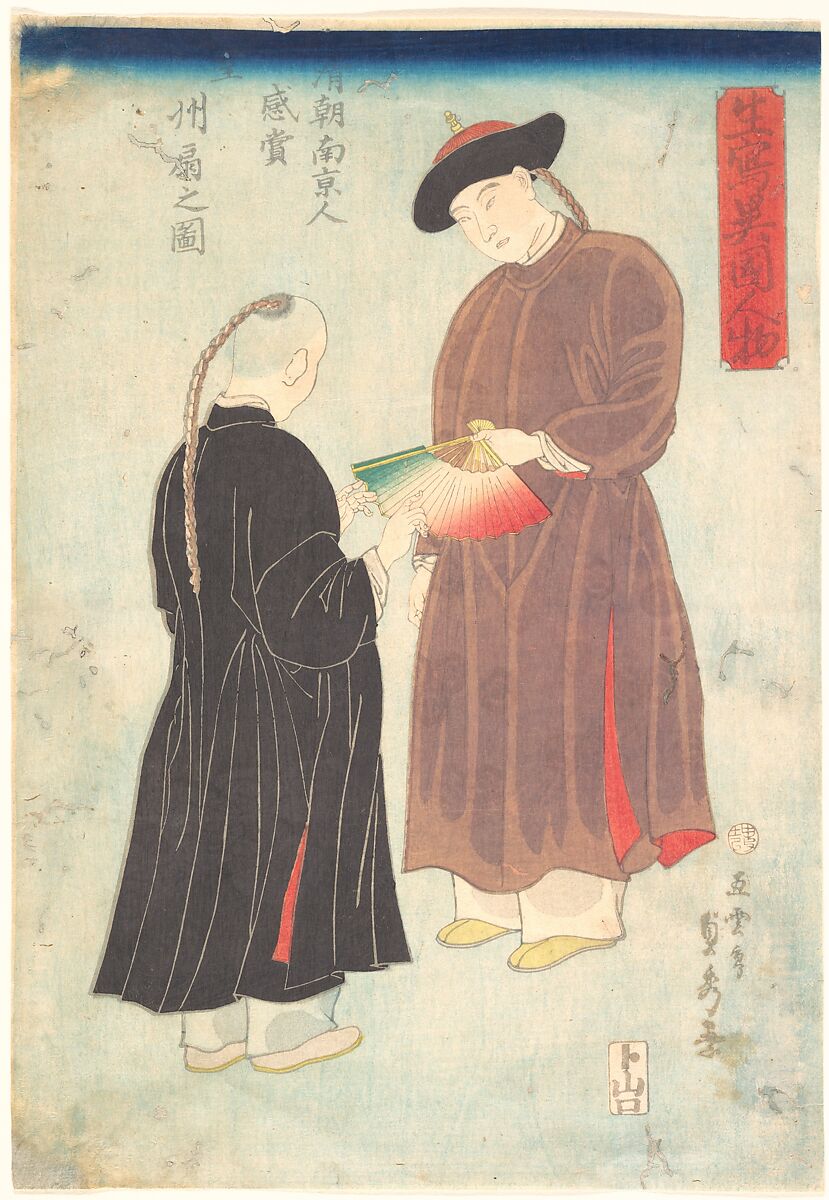 生寫異國人物
清朝南京人
感賞
州扇之圖
五雲亭
貞秀画
卜山口